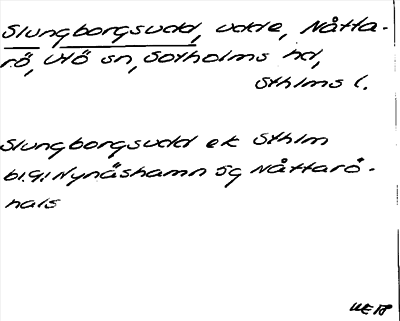 Slungborgsudd, udde, Nåtta-
rö, Utö sn, Sotholms hd,
Sthlms l.
Slungborgsudd ek Sthlm
bl. 91 Nynäshamn 59 Nåttarö-
hals